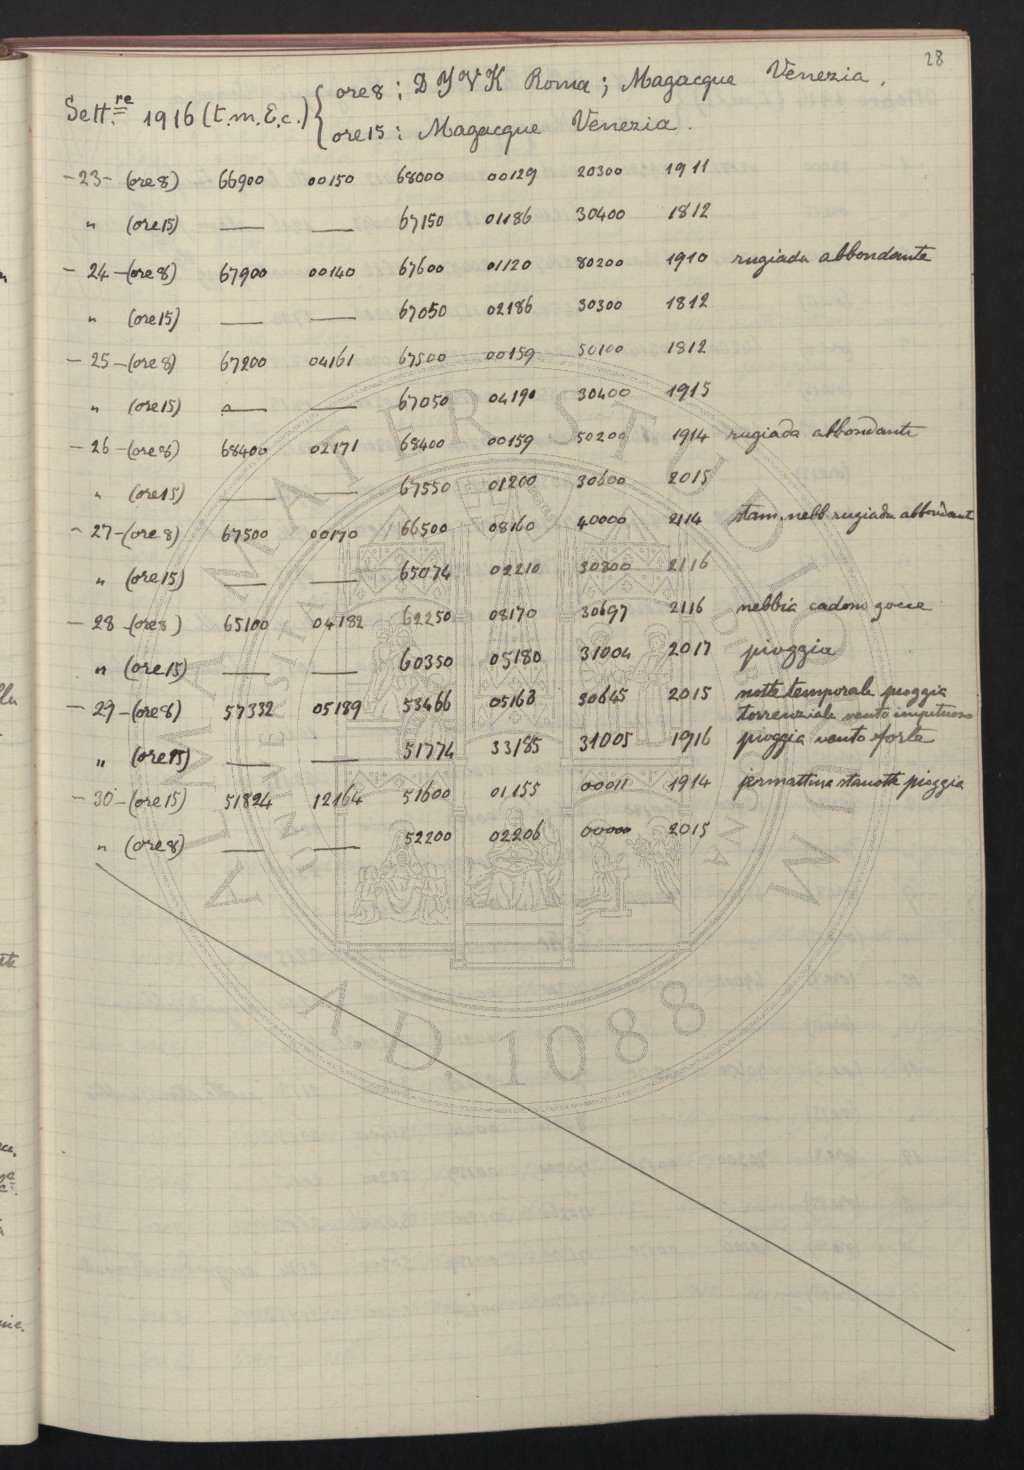 28
Sett.re 1916 (t.m.E.c.) { ore 8 : D Y V K Roma ; Magacque Venezia .
ore 15 : Magacque Venezia .
- 23 - (ore 8) 66900 00150 68000 00129 20300 1911
" (ore 15) — — 67150 01186 30400 1812
- 24 - (ore 8) 67900 00140 67600 01120 80200 1910 rugiada abbondante
" (ore 15) — — 67050 02186 30300 1812
- 25 - (ore 8) 67200 04161 67500 00159 50100 1812
" (ore 15) — — 67050 04190 30400 1915
- 26 - (ore 8) 68400 02171 68400 00159 50200 1914 rugiada abbondante
" (ore 15) — — 67550 01200 30600 2015
- 27 - (ore 8) 67500 00170 66500 08160 40000 2114 stam. nebb. rugiada abbondante
" (ore 15) — — 65074 02210 30800 2116
- 28 - (ore 8) 65100 04182 62250 08170 30697 2116 nebbia cadono gocce
" (ore 15) — — 60350 05180 31004 2017 pioggia
- 29 - (ore 8) 57332 05189 53466 05163 30645 2015 notte temporale pioggia
torrenziale vento impetuoso
" (ore 15) — — 51774 33185 31005 1916 pioggia vento forte
- 30 - (ore 15) 51824 12164 51600 01155 00011 1914 iermattina stanotte pioggia
" (ore 8) — — 52200 02206 00000 2015
ALMA MATER STUDIORUM
A.D. 1088